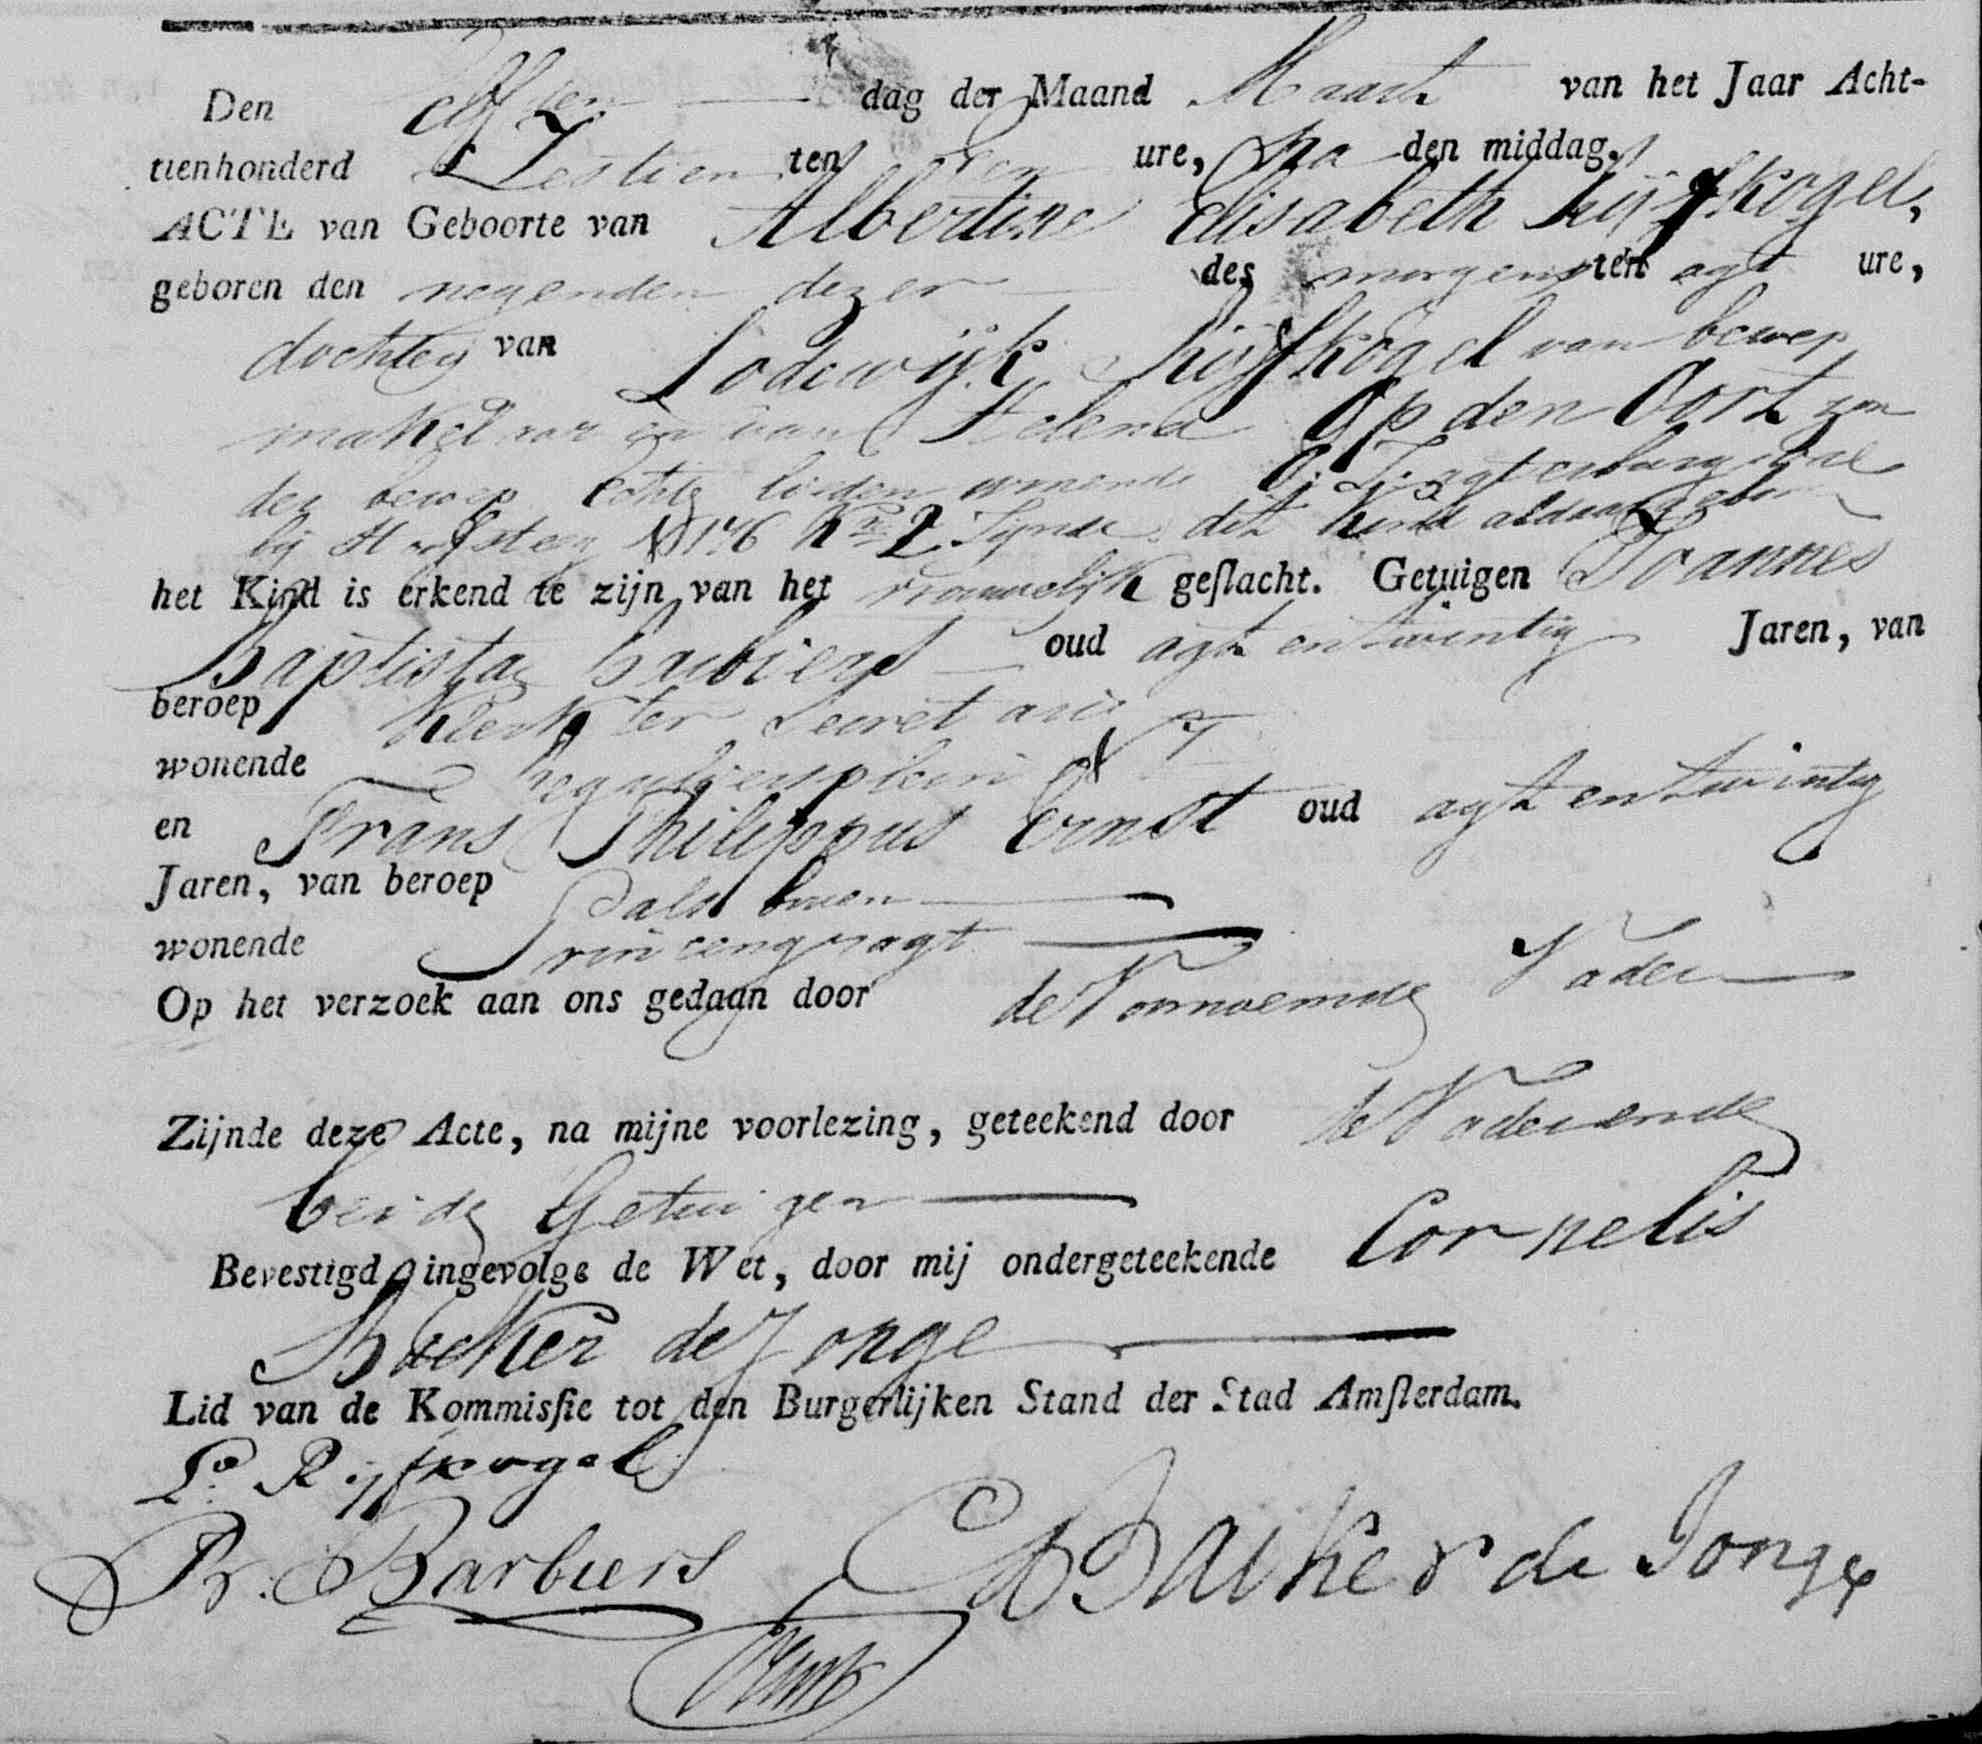 Den elfden dag der Maand Maart van het Jaar Acht-
tienhonderd Zestien ten een ure, na den middag.
ACTE van Geboorte van Albertine Elisabeth Rijfkogel,
geboren den negenden dezer des morgens ten agt ure,
dochter van Lodewijk Rijfkogel van beroep
makelaar en van Helena Op den Oort zon
der beroep Echte lieden wonende O. Z. Agterburgwal
bij Halfsteeg 176 No 2 Zijnde dit kind aldaar geboren
het Kind is erkend te zijn van het vrouwelijk geslacht. Getuigen Joannes
Baptista Barbiers oud agt en twintig Jaren, van
beroep Klerk ter Secretarie
wonende Reguliersplein
en Frans Philippus Ernst oud agt en twintig
Jaren, van beroep als boven
wonende Princengragt
Op het verzoek aan ons gedaan door de Voornoemde Vader
Zijnde deze Acte, na mijne voorlezing, geteekend door de Vader en de
beide Getuigen
Bevestigd ingevolge de Wet, door mij ondergeteekende Cornelis
Backer de Jonge
Lid van de Kommissie tot den Burgerlijken Stand der Stad Amsterdam.
Lo. Rijfkogel
Br. Barbiers C Backer de Jonge